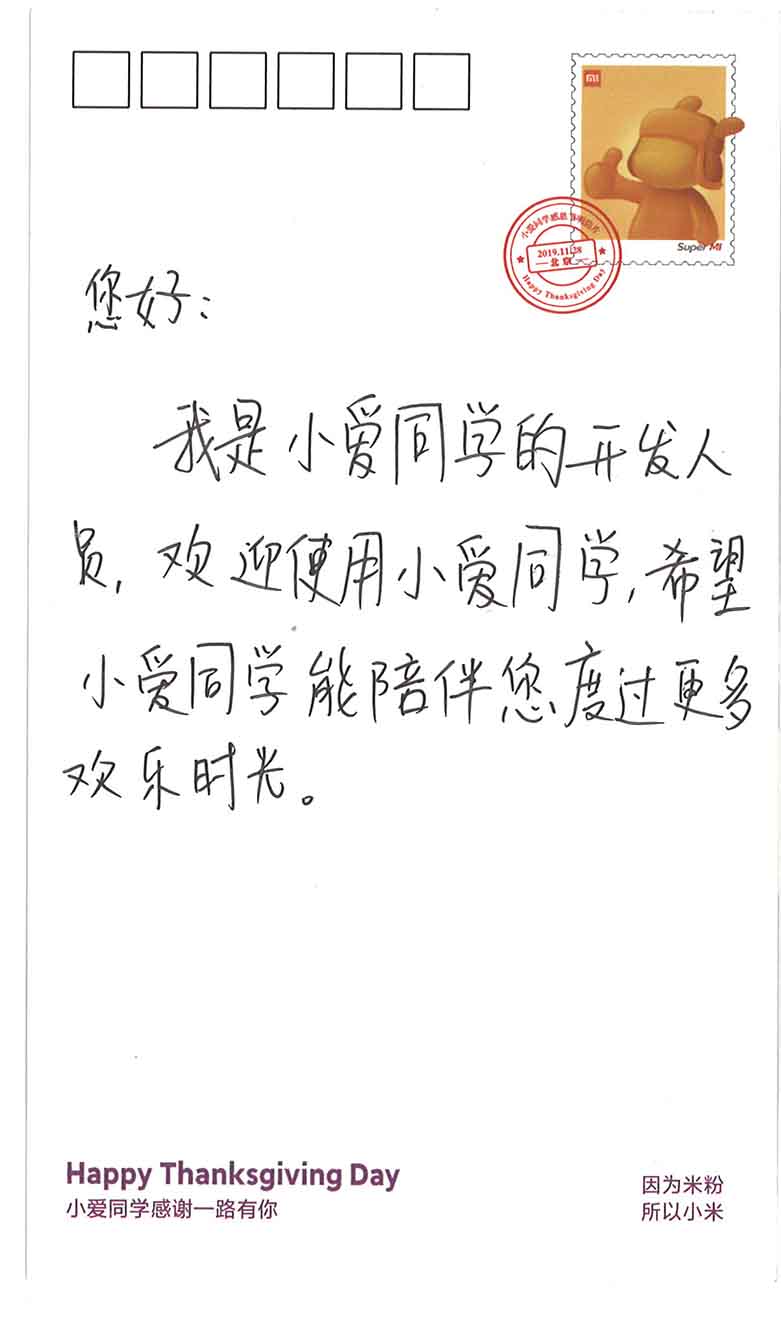 MI
Super MI
小爱同学感恩节明信片
2019.11.28
北京
Happy Thanksgiving Day
您好：
我是小爱同学的开发人
员，欢迎使用小爱同学，希望
小爱同学能陪伴您度过更多
欢乐时光。
Happy Thanksgiving Day
小爱同学感谢一路有你
因为米粉
所以小米